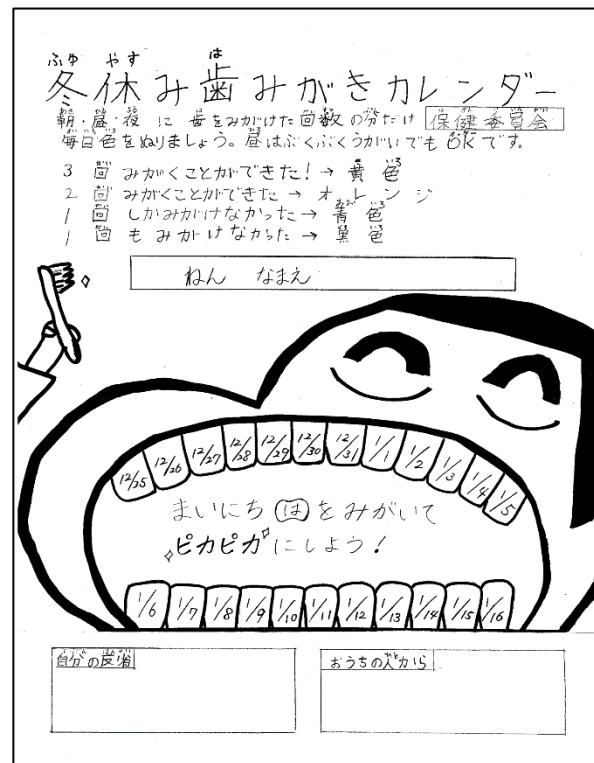 冬休み歯みがきカレンダー
朝・昼・夜に 歯をみがけた回数の分だけ 保健委員会
毎日色をぬりましょう。昼はぶくぶくうがいでもOKです。
3 回 みがくことができた!→ 黄色
2 回 みがくことができた → オレンジ
1 回 しかみがけなかった → 青色
1 回 もみがけなかった → 黒色
ねん なまえ
12/25 12/26 12/27 12/28 12/29 12/30 12/31 1/1 1/2 1/3 1/4 1/5
まいにち はをみがいて
ピカピカにしよう!
1/6 1/7 1/8 1/9 1/10 1/11 1/12 1/13 1/14 1/15 1/16
自分の反省
おうちの人から